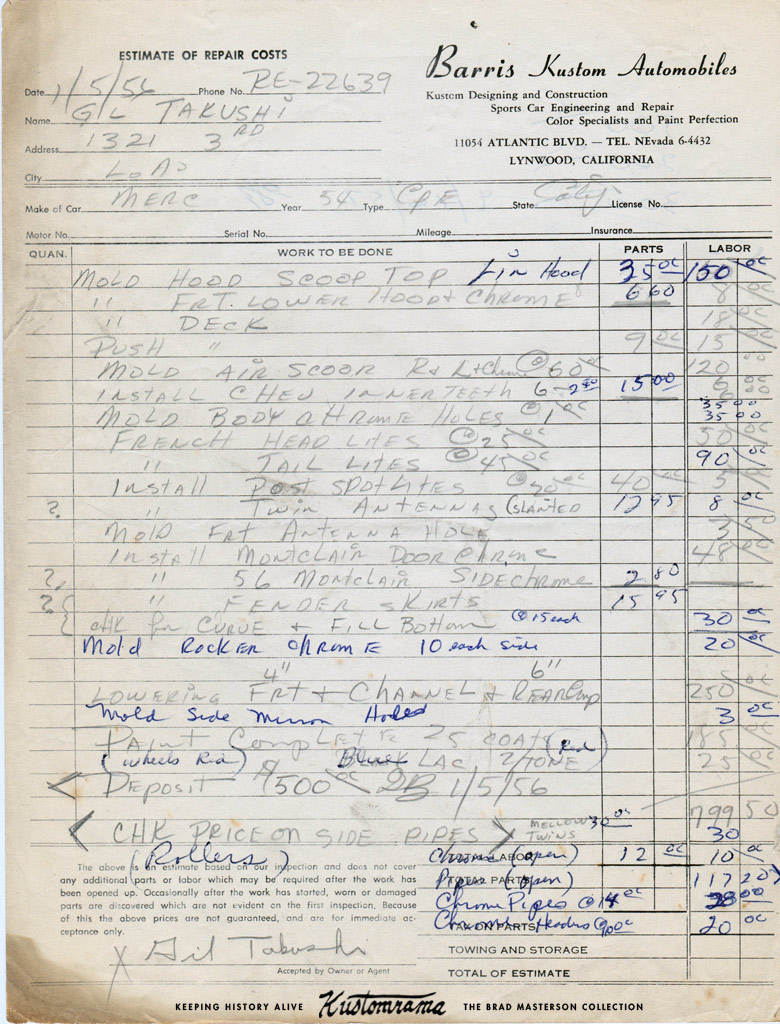 ESTIMATE OF REPAIR COSTS
Date 1/5/56 Phone No. RE-22639
Name GIL TAKUSHI
Address 1321 3RD
City L.A.
Barris Kustom Automobiles
Kustom Designing and Construction
Sports Car Engineering and Repair
Color Specialists and Paint Perfection
11054 ATLANTIC BLVD. — TEL. NEvada 6-4432
LYNWOOD, CALIFORNIA
Make of Car MERC Year 54 Type CPE State Calif License No.
Motor No. Serial No. Mileage Insurance
QUAN. WORK TO BE DONE PARTS LABOR
MOLD HOOD SCOOP TOP Hood 35 00 150 00
" FRT. LOWER HOOD & CHROME 6 60 8
" DECK 18 00
PUSH " 9 00 15 00
MOLD AIR SCOOP R & L & @ 60 00 120 00
INSTALL CHEV INNER TEETH 6 - 2 50 15 00 6 00
MOLD BODY CHROME HOLES @ 1 00 35 00 35 00
FRENCH HEAD LITES @ 25 00 50 00
" TAIL LITES @ 45 00 90 00
Install Post SPOTLITES @ 20 00 40 00 5 00
? " Twin ANTENNAS (SLANTED 12 95 8 00
Mold FRT ANTENNA HOLE 3 50
Install MONTCLAIR DOOR CHROME 48 00
? " 56 Montclair SIDE chrome 2 80
? { " FENDER SKIRTS 15 95
CHK for CURVE & FILL Bottom @ 15 each 30 00
Mold ROCKER CHROME 10 each side 20 00
4" 6"
LOWERING FRT & CHANNEL & REAR 250 00
Mold Side Mirror Holes 3 00
PAINT COMPLETE 25 COATS (Red) 185 00
(wheels Red) Blue LAC 2/TONE 25 00
< Deposit $500 00 1/5/56
799 50
< CHK PRICE ON SIDE PIPES > MELLOW TWINS 30 00 30
(Rollers)
The above is an estimate based on our inspection and does not cover
any additional parts or labor which may be required after the work has
been opened up. Occasionally after the work has started, worn or damaged
parts are discovered which are not evident on the first inspection. Because
of this the above prices are not guaranteed, and are for immediate ac-
ceptance only.
X Gil Takushi
Accepted by Owner or Agent
TOTAL LABOR Chrome (open) 12 00 10 00
TOTAL PARTS Pipes (open) 1172 0
Chrome Pipes @ 14 00 28 00
TAX ON PARTS Chrome Heads 20 00
TOWING AND STORAGE
TOTAL OF ESTIMATE
KEEPING HISTORY ALIVE Kustomrama THE BRAD MASTERSON COLLECTION